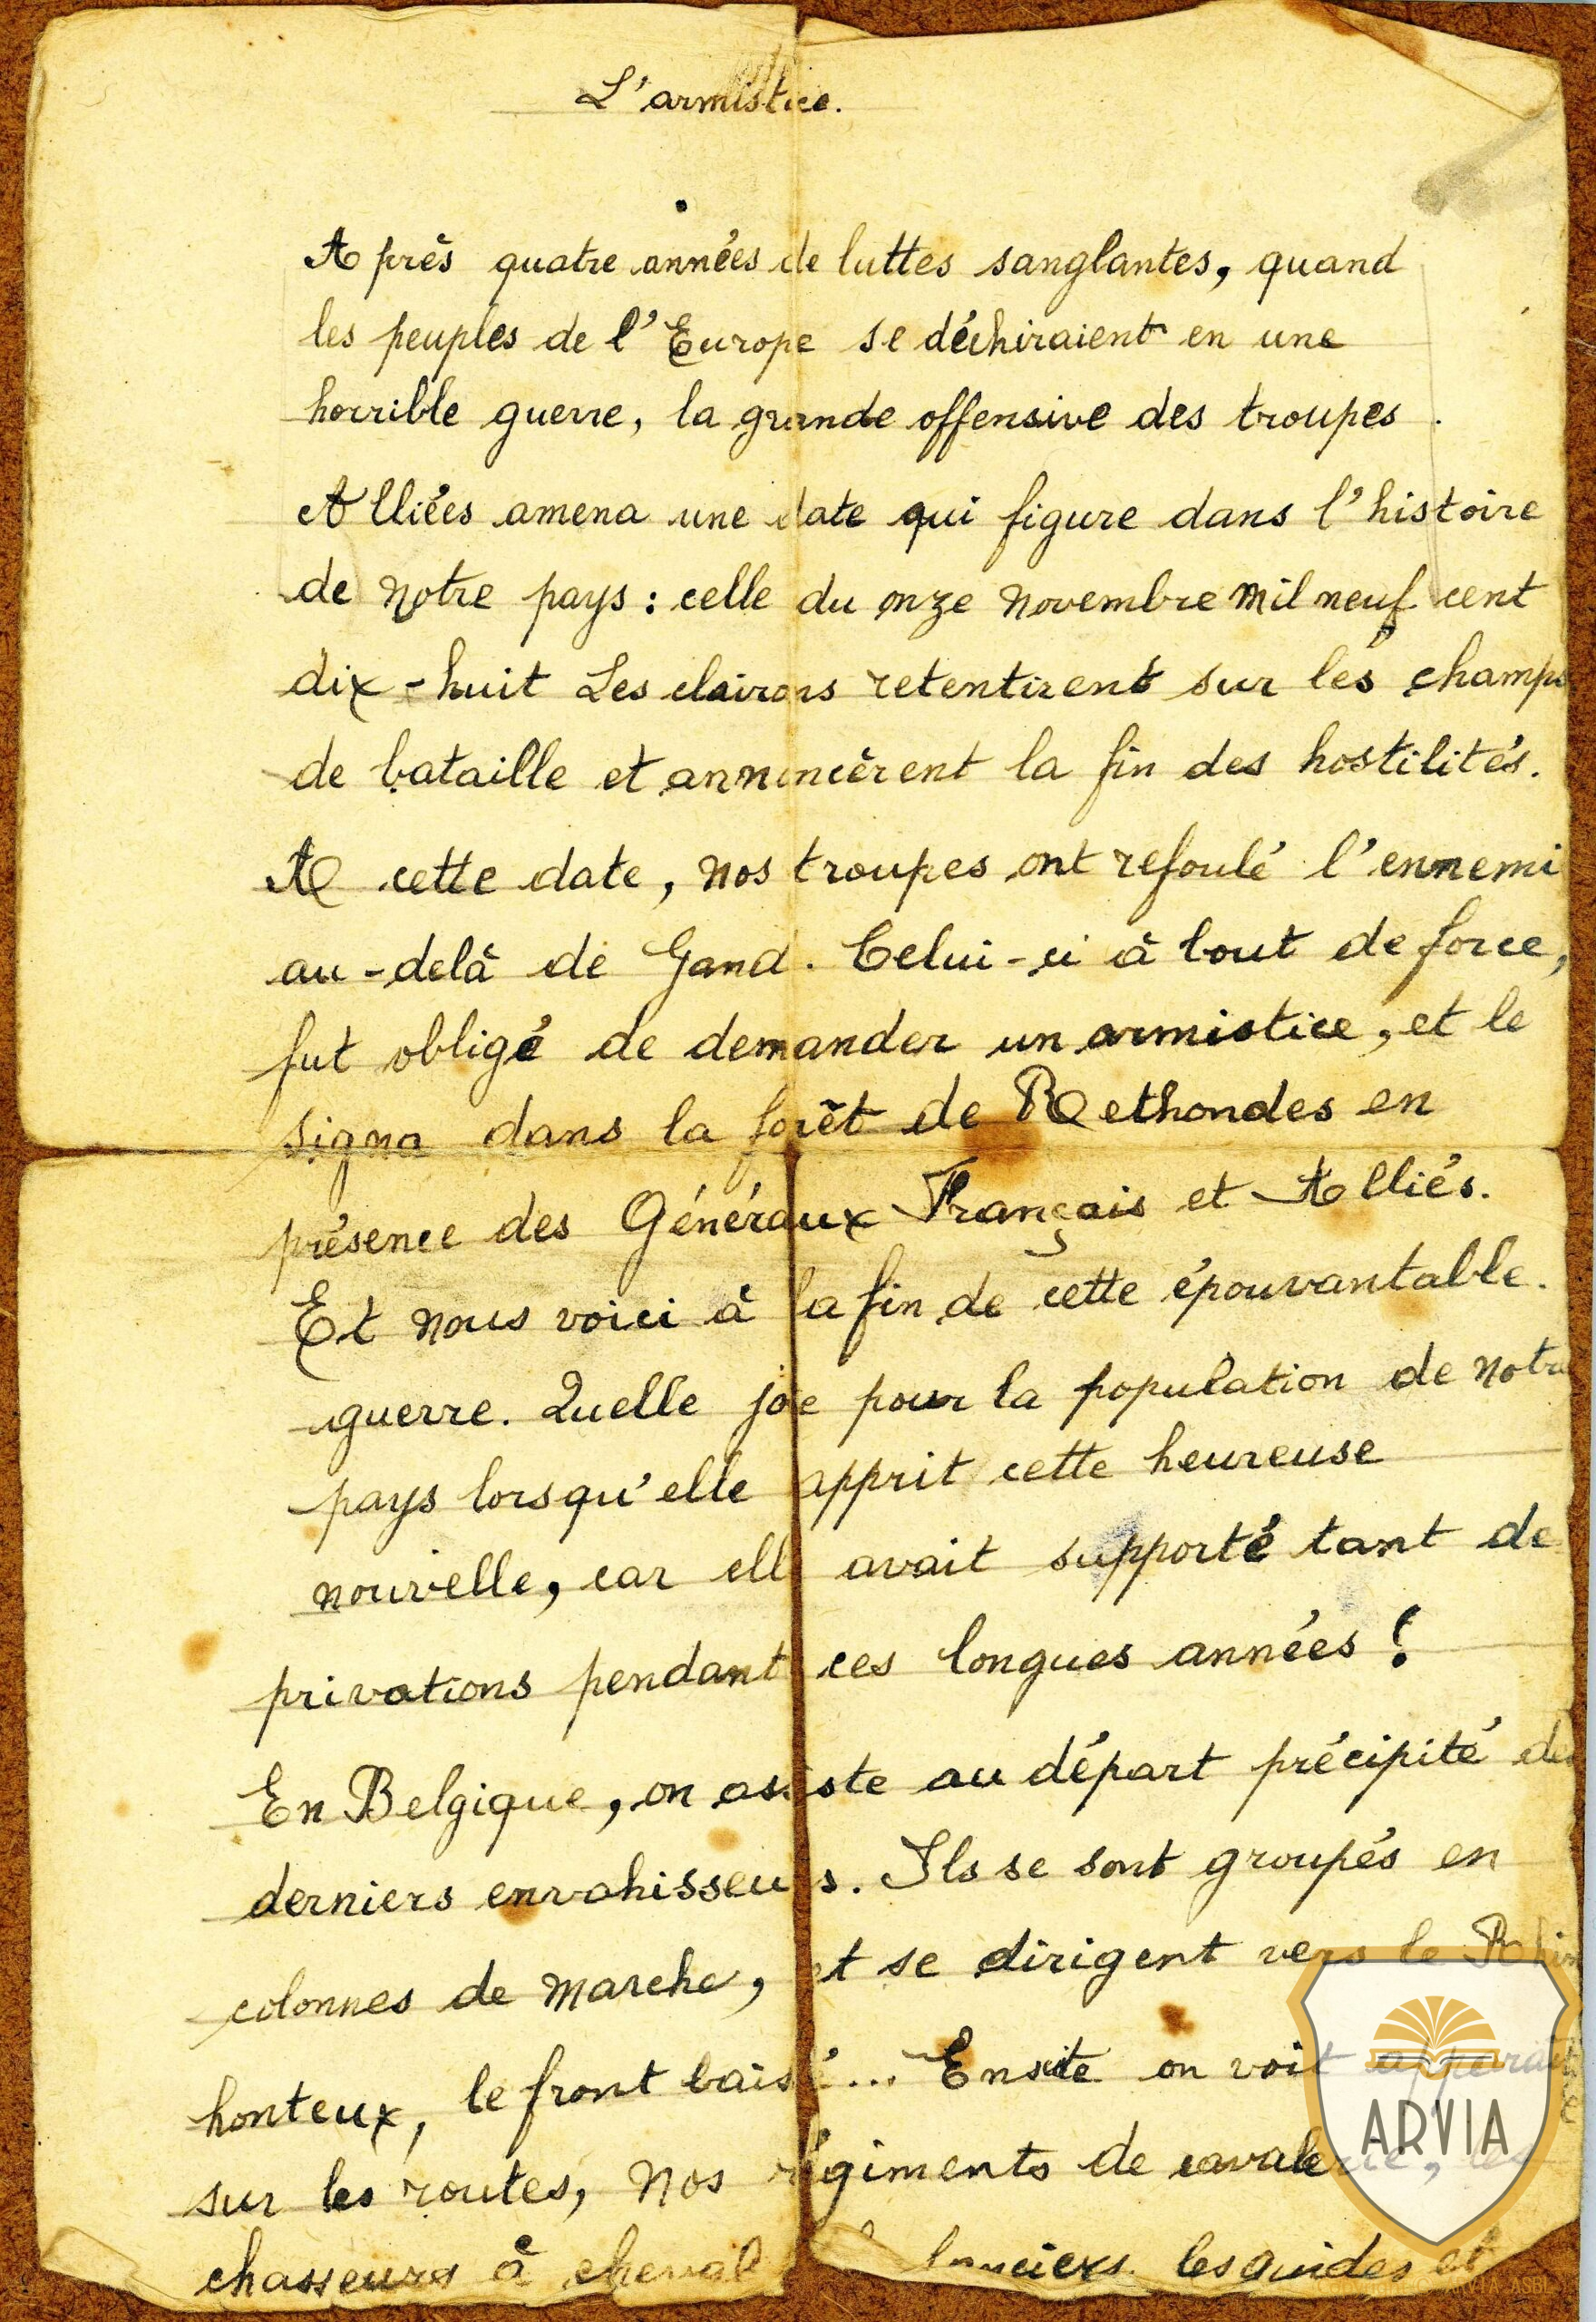 L'armistice.
Après quatre années de luttes sanglantes, quand
les peuples de l'Europe se déchiraient en une
horrible guerre, la grande offensive des troupes
Alliées amena une date qui figure dans l'histoire
de notre pays : celle du onze novembre mil neuf cent
dix-huit Les clairons retentirent sur les champs
de bataille et annoncèrent la fin des hostilités.
A cette date, nos troupes ont refoulé l'ennemi
au-delà de Gand. Celui-ci à bout de force,
fut obligé de demander un armistice, et le
signa dans la forêt de Rethondes en
présence des Généraux Français et Alliés.
Et nous voici à la fin de cette épouvantable.
guerre. Quelle joie pour la population de notre
pays lorsqu'elle apprit cette heureuse
nouvelle, car ell avait supporté tant de
privations pendant ces longues années !
En Belgique, on assiste au départ précipité des
derniers envahisseurs. Ils se sont groupés en
colonnes de marche, et se dirigent vers le Rhin
honteux, le front baissé... Ensuite on voit apparaître
sur les routes, nos régiments de cavalerie, les
chasseurs à cheval lanciers les guides et
ARVIA
ARVIA ASBL